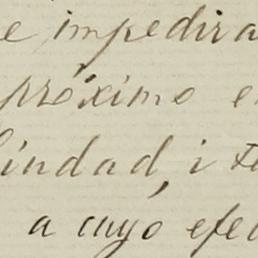 e impedira
próximo e
lindad, i te
a cuyo efec